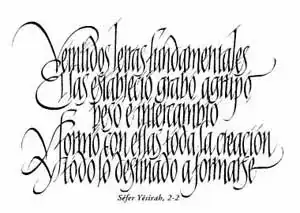 Veintidos letras fundamentales
Ellas estableció grabó agrupó
pesó e intercambió
Y formó con ellas toda la creación
y todo lo destinado a formarse
Séfer Yésirah, 2-2